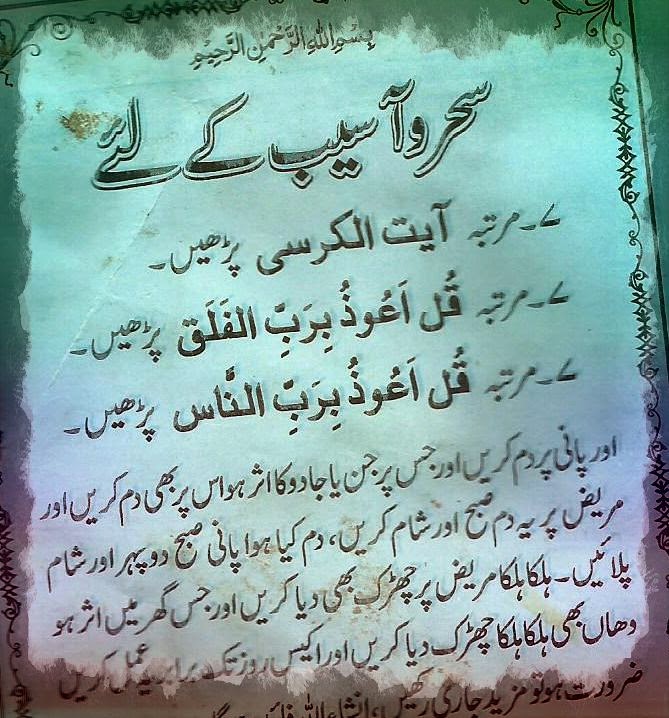 بِسْمِ اللّٰهِ الرَّحْمٰنِ الرَّحِيْمِ
سحر و آسیب کے لئے
۷۔مرتبہ آیت الکرسی پڑھیں۔
۷۔مرتبہ قُل اَعُوذُ بِرَبِّ الفَلَق پڑھیں۔
۷۔مرتبہ قُل اَعُوذُ بِرَبِّ النَّاس پڑھیں۔
اور پانی پر دم کریں اور جس پر جن یا جادو کا اثر ہو اس پر بھی دم کریں اور
مریض پر یہ دم صبح اور شام کریں، دم کیا ہوا پانی صبح دوپہر اور شام
پلائیں۔ہلکا ہلکا مریض پر چھڑک بھی دیا کریں اور جس گھر میں اثر ہو
وھاں بھی ہلکا ہلکا چھڑک دیا کریں اور اکیس روز تک برابر یہ عمل کریں
ضرورت ہو تو مزید جاری رکھیں، انشاء اللہ